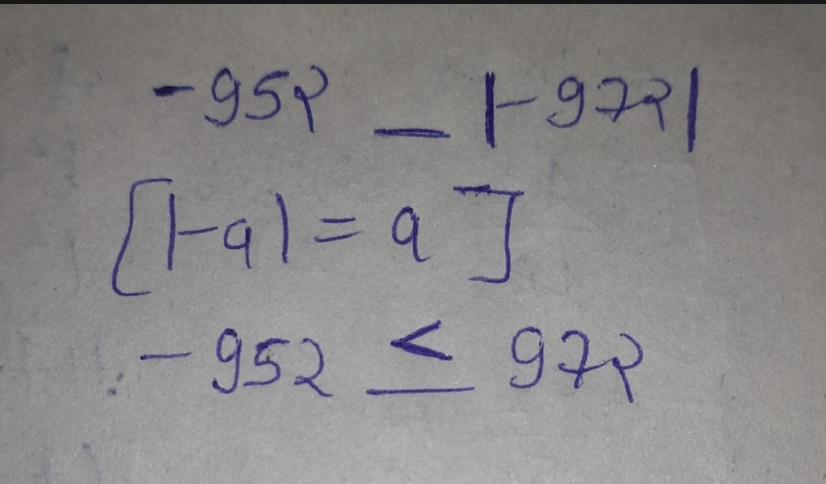 -952 _ |-972|
[|-a| = a]
-952 < 972